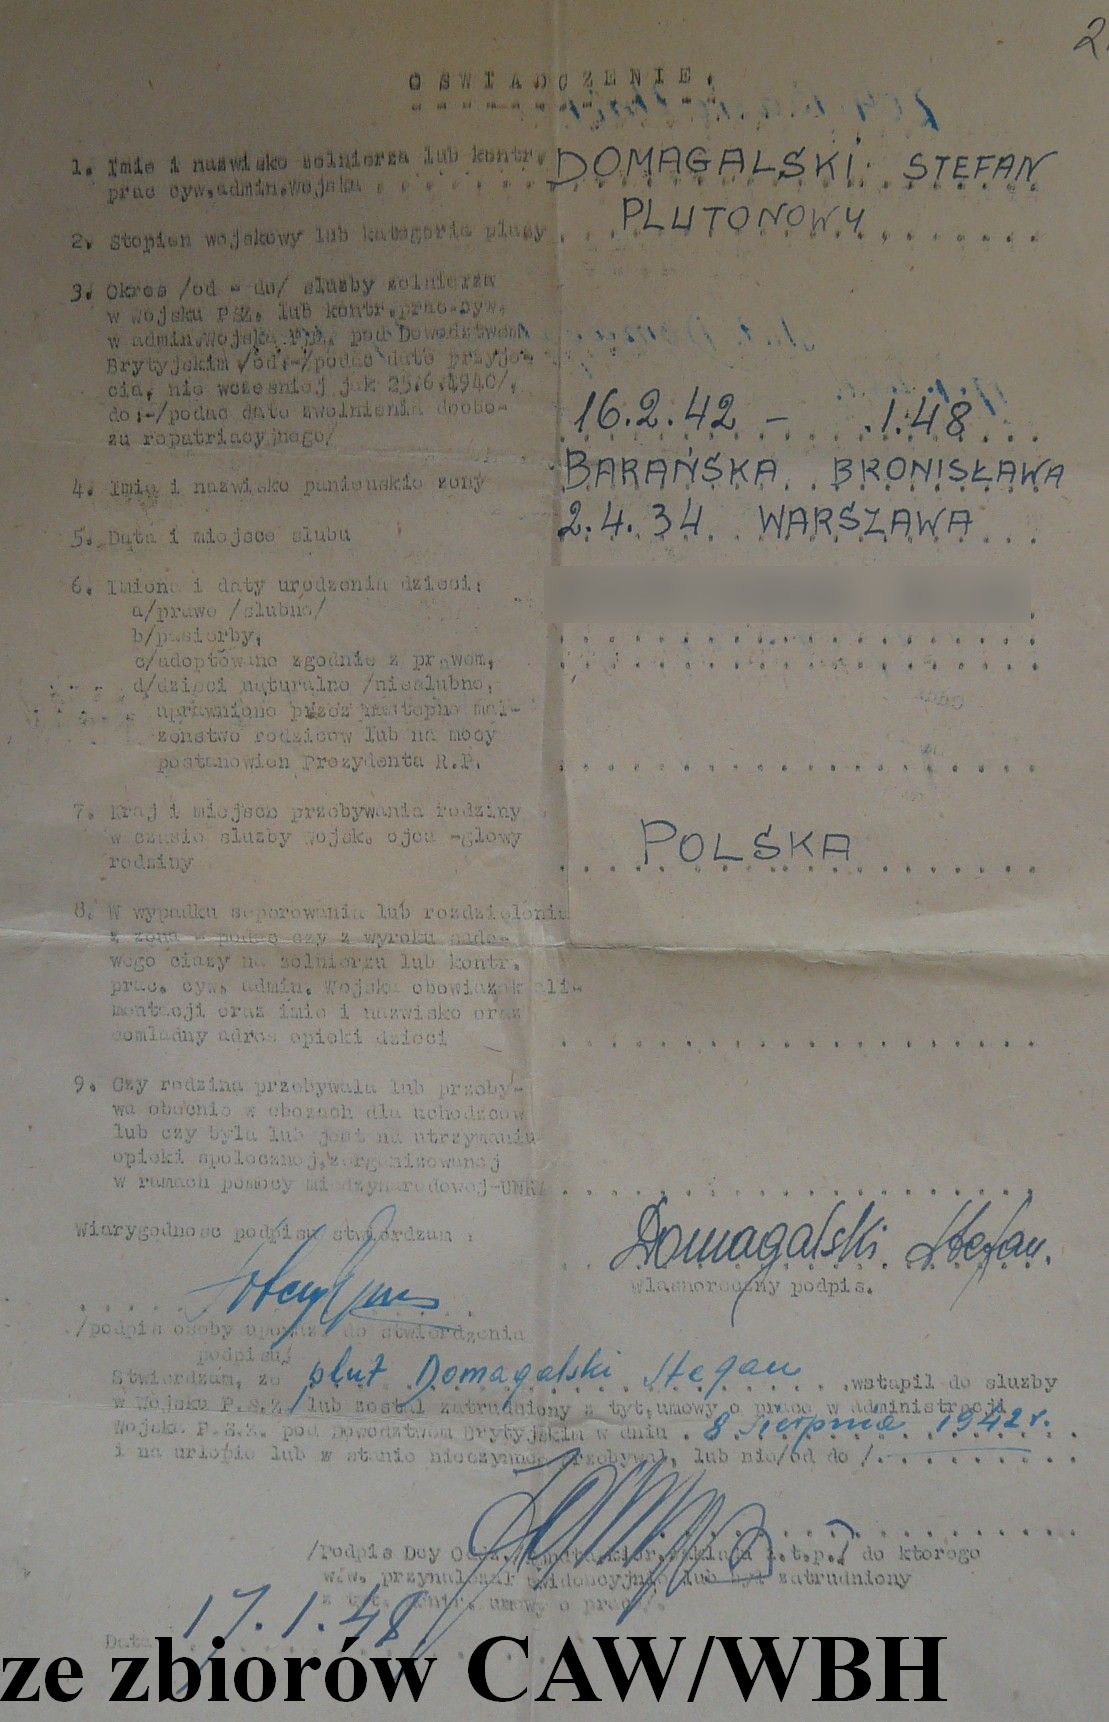 2.
OSWIADCZENIE.
1. Imie i nazwisko zolnierza lub kontr. DOMAGALSKI STEFAN
prac cyw.admin.Wojska
2. Stopien wojskowy lub kategoria placy PLUTONOWY
3. Okres /od - do/ sluzby zolnierza
w wojsku PSZ. lub kontr.prac.cyw.
w admin.Wojska pod Dowodztwem
Brytyjskim /od:-/podac date przyje-
cia, nie wczesniej jak 25.6.1940/,
do:-/podac date zwolnienia dc obo- 16.2.42 - .1.48
zu repatriacyjnego/
4. Imie i nazwisko panienskie zony BARAŃSKA BRONISŁAWA
5. Data i miejsce slubu 2.4.34 WARSZAWA
6. Imiona i daty urodzenia dzieci:
a/prawe /slubne/
b/pasierby,
c/adoptowane zgodnie z prawem,
d/dzieci naturalne /nieslubne,
uprawnione przez nastepne mal-
zenstwo rodzicow lub na mocy
postanowien Prezydenta R.P.
7. Kraj i miejsce przebywania rodziny
w czasie sluzby wojsk. ojca -glowy POLSKA
rodziny
8. W wypadku separowania lub rozdzielenia
z zona - podac czy z wyroku sado-
wego ciazy na zolnierzu lub kontr.
prac. cyw. admin. Wojska obowiazek ali-
mentacji oraz imie i nazwisko oraz
adres opieki dzieci
9. Czy rodzina przebywala lub przeby-
wa obecnie w obozach dla uchodzcow
lub czy byla lub jest na utrzymaniu
opieki spolecznej,zorganizowanej
w ramach pomocy miedzynarodowej-UNRA
Wiarygodnosc podpisu stwierdzam : Domagalski Stefan.
wlasnoreczny podpis.
/podpis osoby upowaz. do stwierdzenia
podpisu/
Stwierdzam, ze plut Domagalski Stefan .wstapil do sluzby
w Wojsku P.S.Z. lub zostal zatrudniony z tyt.umowy o prace w administracji
Wojska P.S.Z. pod Dowodztwem Brytyjskim w dniu 8 sierpnia 1942 r.
i na urlopie lub w stanie nieczynnym przebywal, lub nie/od do /.
/Podpis Dcy i.t.p./ do ktorego
w/w. przynalezal ewidencyjnie lub byl zatrudniony
z tyt. kontr. umowy o prace/.
Data 17.1.48
ze zbiorów CAW/WBH